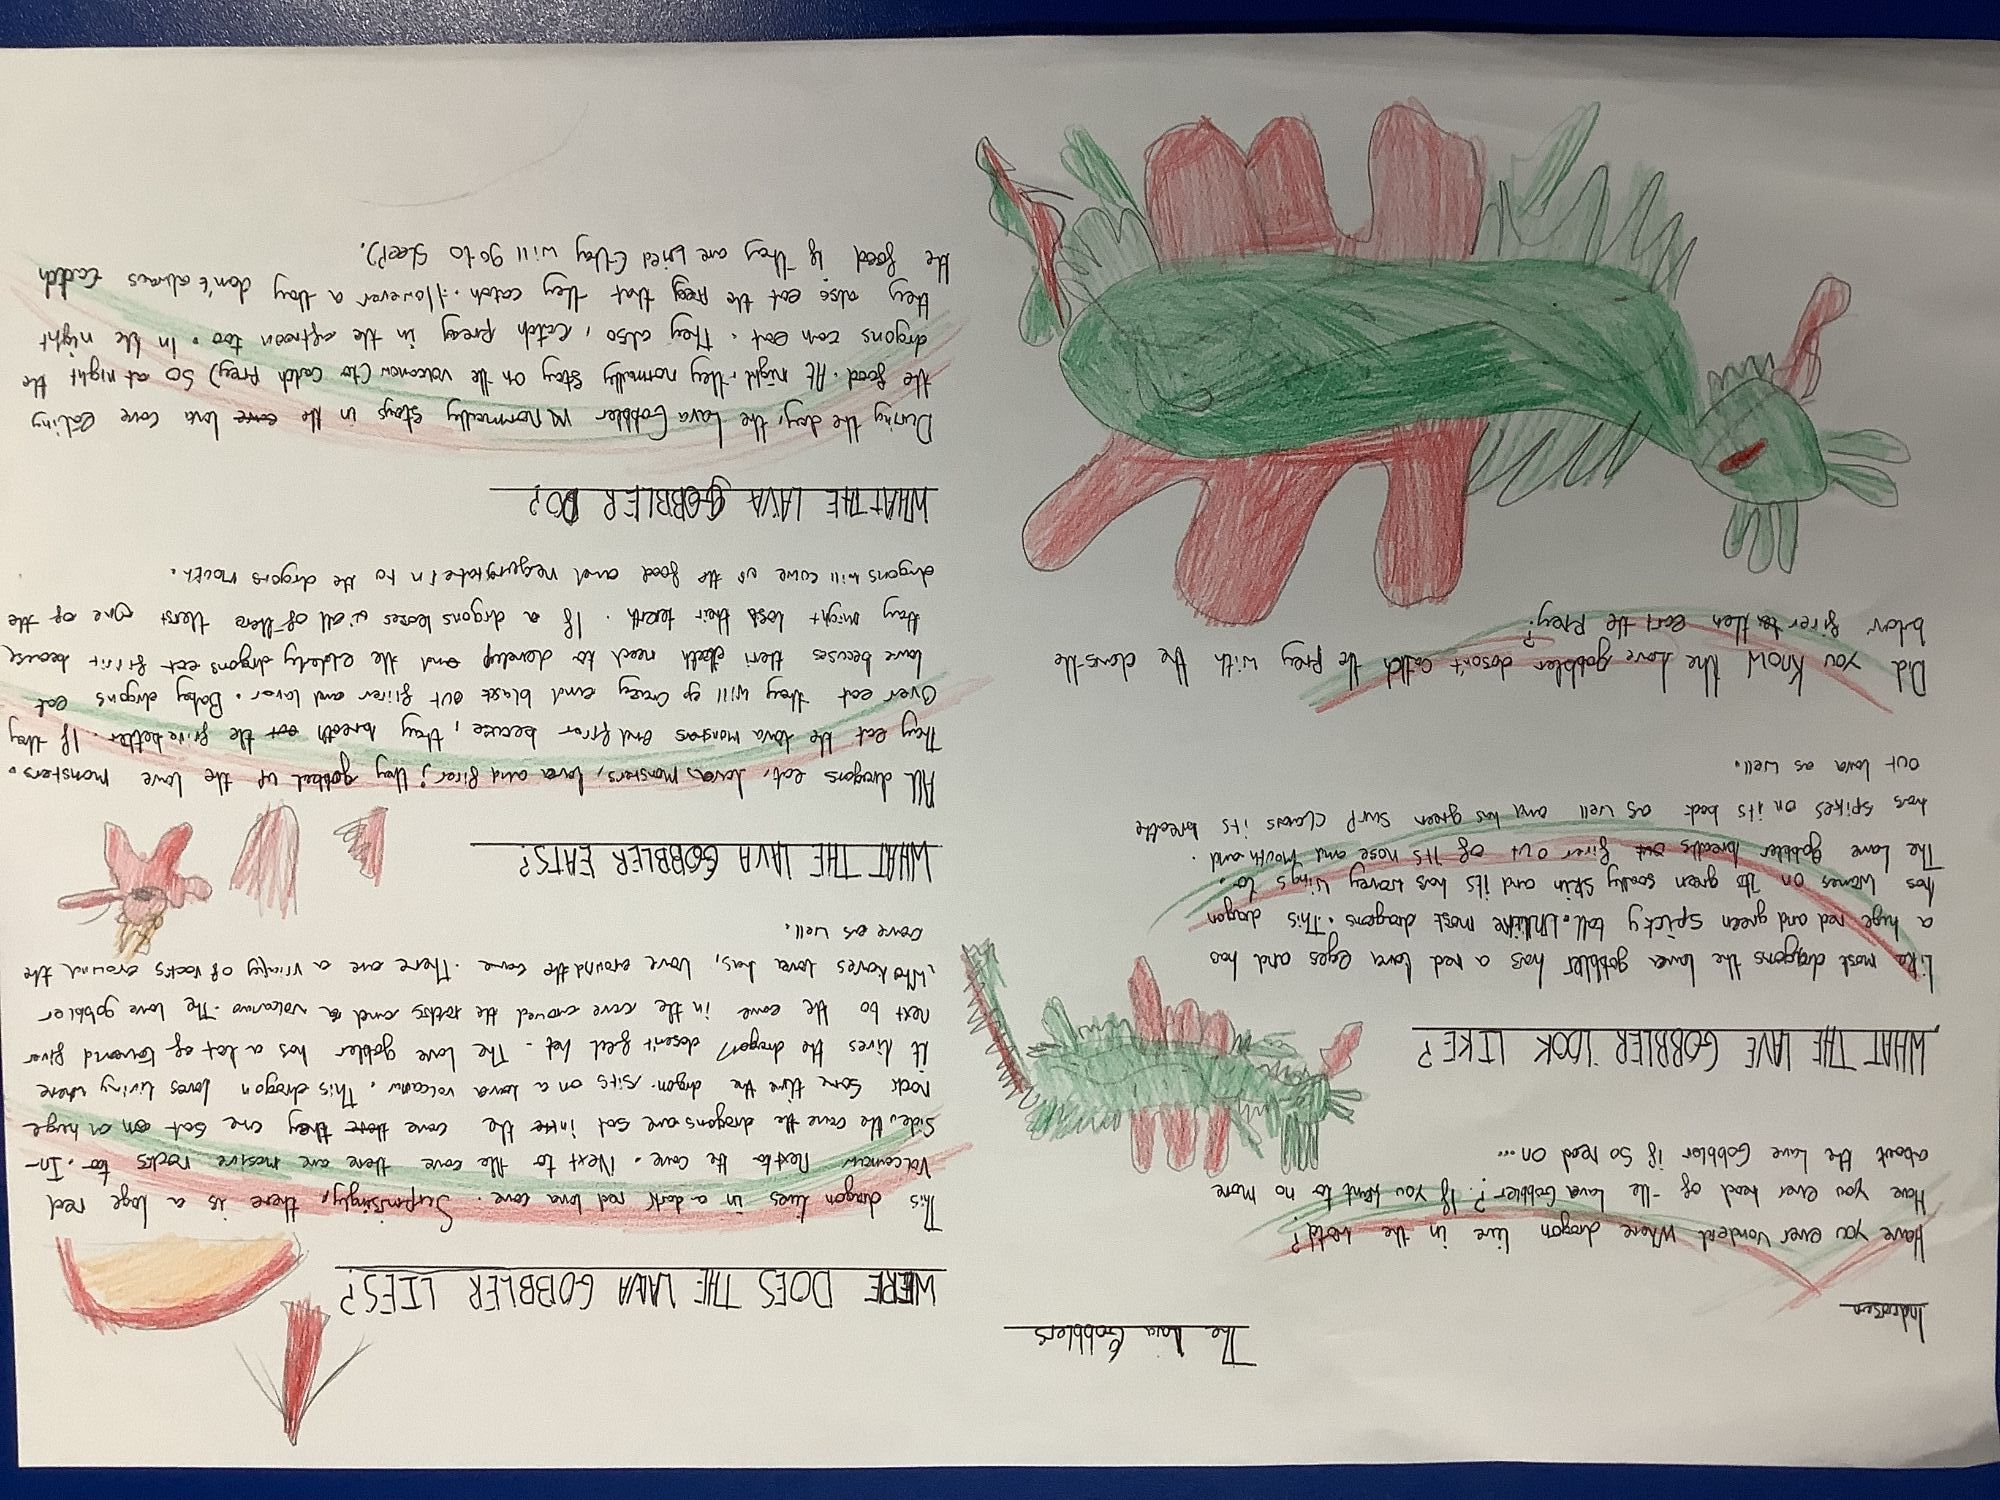 The Lava Gobblers
Have you ever vonderd where dragon live in the wolrd?
Have you ever head of the Lava Gobbler?. If you went to no more
about the Lave Gobbler if so read on...
WHAT THE LAVE GOBBLER LOOK LIKE?
Like most dragons the lava gobbler has a red lava eges and has
a huge red and green spicky tall. Unlike most dragons. This dragon
has wanes on its green scaly skin and its has wavey wings to.
The lave gobbler breaths out firer out of its nose and mouth and.
has spikes on its back as well and has green surp claws its breathe
out lava as well.
Did you know the Lave gobbler doson't catch the prey with the claws the
blow firer to then eat the prey?
WERE DOES THE LAVA GOBBLER LIES?
This dragon lives in a dark red lava cave. Surprisingly, there is a lage red
volcanow Next to the cave. Next to the cave there are masive rocks to. In-
side, the cave the dragons are sat in the cave there they are sat on a huge
rock some time the drgon. sits on a lava volcanw. This dragon loves living where
It lives the dragon dosen't feel hot. The lave gobler has a lot of tomond firer
next to the cave in the cave arowd the rockes and a volcanvo. The lave gobbler
who loves lava has, lave around the cave. There are a virity of rocks around the
cave as well.
WHAT THE LAVA GOBBLER EATS?
All dragons eat, lava monsters, lava and firer; they gobbel up the lave monsters.
They eat the lava monstars and firer because, they, breath out the firie better. If they
Over eat they will go crazy and blast out fiirer and lavar. Baby drgons eat
lave becuses their teeth need to develup and the elderly drgons eat first because
they might lost their teerth. If a drgons looses all of there terst One of the
drgons will cuwe up the food and regurgitate in to the drgons mouth.
WHAT THE LAVA GOBBLER DO?
During the day, the Lava Gobbler normally stays in the lava cave eating
the food. At night, they normally stay on the volcanow (to catch prey) so at night the
drgons can eat. They also, catch preay in the aftrnoon too. In the night
they also eat the prey that they catch. However a thay don't always catch
the food if they are tried (thay will go to sleep).